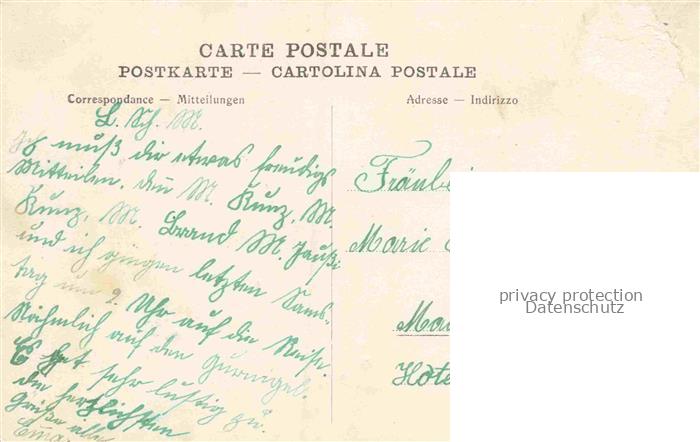 CARTE POSTALE
POSTKARTE — CARTOLINA POSTALE
Correspondance — Mitteilungen
Adresse — Indirizzo
L. Sch. M.
Ich muß dir etwas freudigs
Mitteilen. den M. Kunz, M.
Kunz, M. Brand M. Jaußi
und ich gingen letzten Sams-
tag um 2. Uhr auf die Reise.
Nähmlich auf den Gurnigel.
Es get sehr lustig zu.
die herzlichsten
Grüße alle
Fräulei
Marie
Ma
Hote
privacy protection
Datenschutz